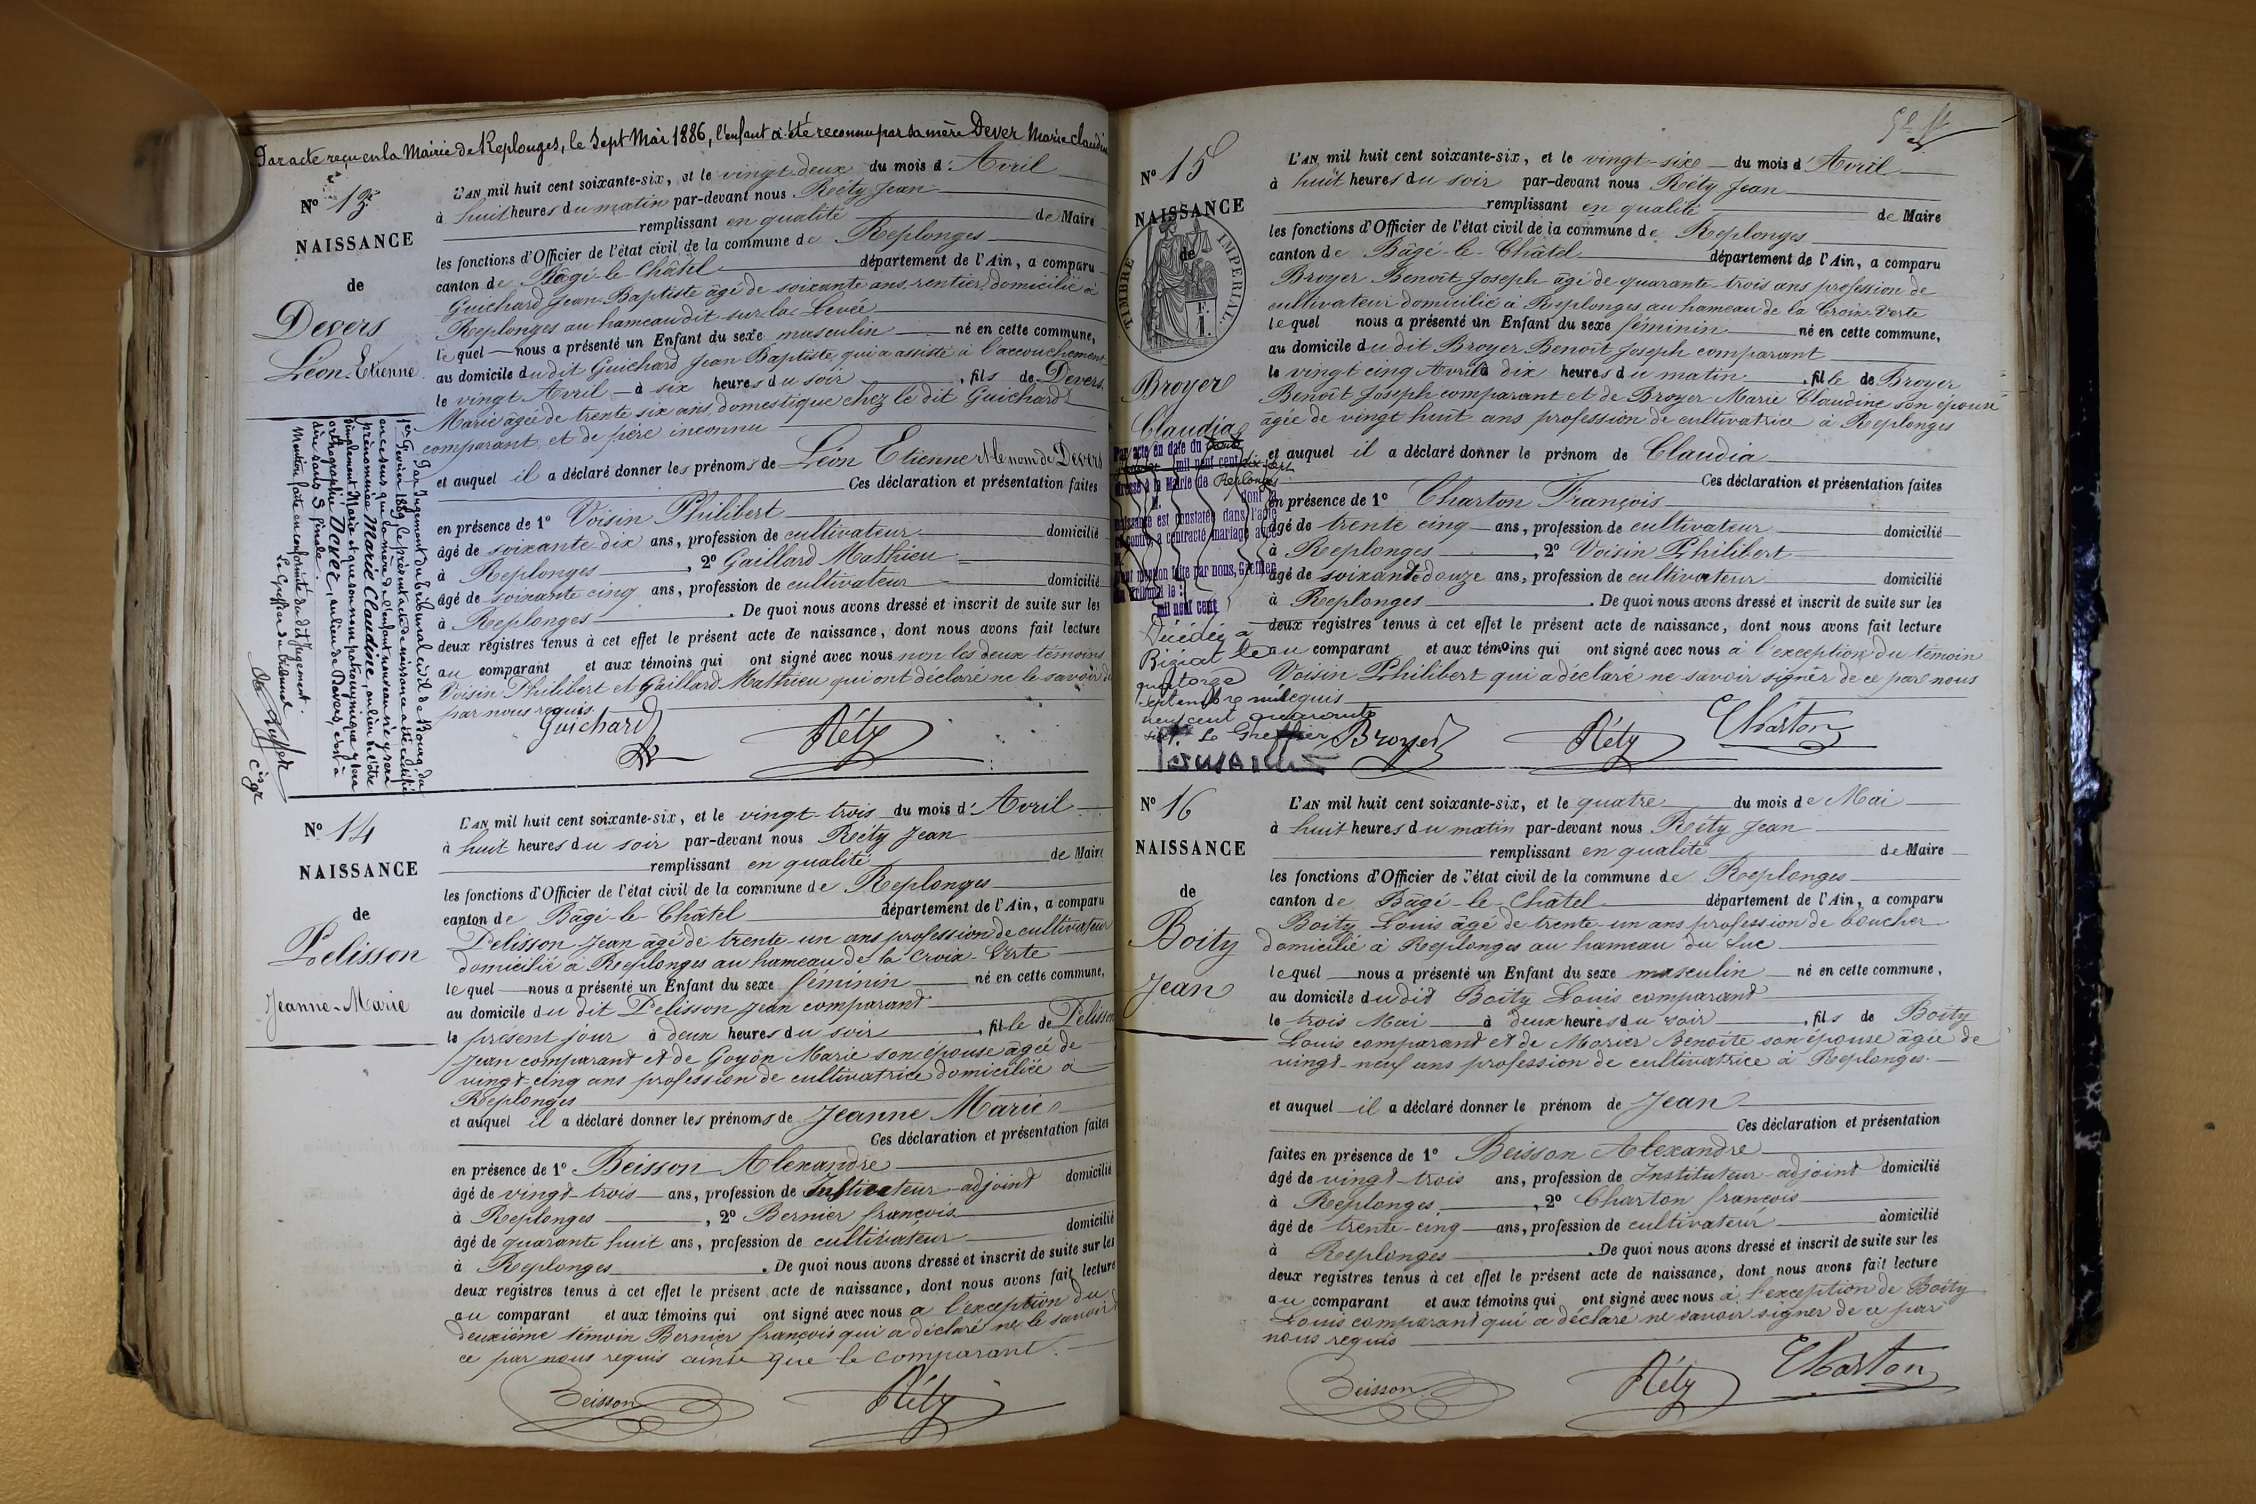 Par acte reçu en la Mairie de Replonges, le Sept Mai 1886, l'enfant a été reconnu par sa mère Dever Marie Claudine
N° 13
NAISSANCE
de
Devers
Léon-Etienne
L'AN mil huit cent soixante-six, et le vingt-deux du mois d'Avril
à huit heures du matin par-devant nous Réty Jean
remplissant en qualité de Maire
les fonctions d'Officier de l'état civil de la commune de Replonges
canton de Bâgé-le-Châtel département de l'Ain, a comparu
Guichard Jean-Baptiste âgé de soixante ans rentier domicilié à
Replonges au hameau dit sur la Levée
lequel nous a présenté un Enfant du sexe masculin né en cette commune,
au domicile du dit Guichard Jean Baptiste, qui a assisté à l'accouchement
le vingt Avril à six heures du soir, fils de Devers
Marie âgée de trente six ans, domestique chez le dit Guichard
comparant et de père inconnu
et auquel il a déclaré donner les prénoms de Léon Etienne et le nom de Devers
Ces déclaration et présentation faites
en présence de 1° Voisin Philibert
âgé de soixante dix ans, profession de cultivateur domicilié
à Replonges, 2° Gaillard Mathieu
âgé de soixante cinq ans, profession de cultivateur domicilié
à Replonges. De quoi nous avons dressé et inscrit de suite sur les
deux registres tenus à cet effet le présent acte de naissance, dont nous avons fait lecture
au comparant et aux témoins qui ont signé avec nous non les deux témoins
Voisin Philibert et Gaillard Mathieu qui ont déclaré ne le savoir de
par nous requis
Guichard Réty
Par Jugement du Tribunal civil de Bourg, du
1er Février 1889, le précédent acte de naissance a été rectifié
en ce sens que la mère de l'enfant nouveau né y sera
prénommée Marie Claudine, au lieu de l'être
simplement Marie et que son nom patronymique y sera
orthographié Dever, au lieu de Devers, c'est à
dire sans S finale.
Mention faite en conformité du dit Jugement.
Le Greffier du Tribunal
N° 14
NAISSANCE
de
Pelisson
Jeanne-Marie
L'AN mil huit cent soixante-six, et le vingt-trois du mois d'Avril
à huit heures du soir par-devant nous Réty Jean
remplissant en qualité de Maire
les fonctions d'Officier de l'état civil de la commune de Replonges
canton de Bâgé-le-Châtel département de l'Ain, a comparu
Pelisson Jean âgé de trente-un ans profession de cultivateur
domicilié à Replonges au hameau de la Croix-Verte
lequel nous a présenté un Enfant du sexe féminin né en cette commune,
au domicile du dit Pelisson Jean comparant
le présent jour à deux heures du soir, fille de Pelisson
Jean comparant et de Goyon Marie son épouse âgée de
vingt-cinq ans profession de cultivatrice domiciliée à
Replonges
et auquel il a déclaré donner les prénoms de Jeanne Marie
Ces déclaration et présentation faites
en présence de 1° Beisson Alexandre
âgé de vingt-trois ans, profession de Instituteur-adjoint domicilié
à Replonges, 2° Bernier françois
âgé de quarante huit ans, profession de cultivateur domicilié
à Replonges. De quoi nous avons dressé et inscrit de suite sur les
deux registres tenus à cet effet le présent acte de naissance, dont nous avons fait lecture
au comparant et aux témoins qui ont signé avec nous a l'exception du
deuxième témoin Bernier françois qui a déclaré ne le savoir
ce par nous requis ainsi que le comparant.
Beisson Réty
N° 15
NAISSANCE
de
TIMBRE IMPERIAL
Broyer
Claudia
Par acte en date du
mil neuf cent dix-sept
dressé à la Mairie de Replonges
dont la
naissance est constatée dans l'acte
ci-contre, a contracté mariage avec
Dont mention faite par nous, Greffier
du Tribunal le
mil neuf cent
Décédée à
Biziat le
quatorze
septembre mil
neuf cent quarante
sept. Le Greffier
L'AN mil huit cent soixante-six, et le vingt-six du mois d'Avril
à huit heures du soir par-devant nous Réty Jean
remplissant en qualité de Maire
les fonctions d'Officier de l'état civil de la commune de Replonges
canton de Bâgé-le-Châtel département de l'Ain, a comparu
Broyer Benoît Joseph âgé de quarante-trois ans profession de
cultivateur domicilié à Replonges au hameau de la Croix-Verte
lequel nous a présenté un Enfant du sexe féminin né en cette commune,
au domicile du dit Broyer Benoît Joseph comparant
le vingt cinq Avril à dix heures du matin, fille de Broyer
Benoît Joseph comparant et de Broyer Marie Claudine son épouse
âgée de vingt huit ans profession de cultivatrice à Replonges
et auquel il a déclaré donner le prénom de Claudia
Ces déclaration et présentation faites
en présence de 1° Charton François
âgé de trente cinq ans, profession de cultivateur domicilié
à Replonges, 2° Voisin Philibert
âgé de soixante douze ans, profession de cultivateur domicilié
à Replonges. De quoi nous avons dressé et inscrit de suite sur les
deux registres tenus à cet effet le présent acte de naissance, dont nous avons fait lecture
au comparant et aux témoins qui ont signé avec nous à l'exception du témoin
Voisin Philibert qui a déclaré ne savoir signer de ce par nous
requis
Broyer Réty Charton
N° 16
NAISSANCE
de
Boity
Jean
L'AN mil huit cent soixante-six, et le quatre du mois de Mai
à huit heures du matin par-devant nous Réty Jean
remplissant en qualité de Maire
les fonctions d'Officier de l'état civil de la commune de Replonges
canton de Bâgé-le-Châtel département de l'Ain, a comparu
Boity Louis âgé de trente-un ans profession de boucher
domicilié à Replonges au hameau du Luc
lequel nous a présenté un Enfant du sexe masculin né en cette commune,
au domicile du dit Boity Louis comparant
le trois Mai à deux heures du soir, fils de Boity
Louis comparant et de Morier Benoite son épouse âgée de
vingt-neuf ans profession de cultivatrice à Replonges.
et auquel il a déclaré donner le prénom de Jean
Ces déclaration et présentation
faites en présence de 1° Beisson Alexandre
âgé de vingt-trois ans, profession de Instituteur-adjoint domicilié
à Replonges, 2° Charton françois
âgé de trente-cinq ans, profession de cultivateur domicilié
à Replonges. De quoi nous avons dressé et inscrit de suite sur les
deux registres tenus à cet effet le présent acte de naissance, dont nous avons fait lecture
au comparant et aux témoins qui ont signé avec nous à l'exception de Boity
Louis comparant qui a déclaré ne savoir signer de ce par
nous requis
Beisson Réty Charton